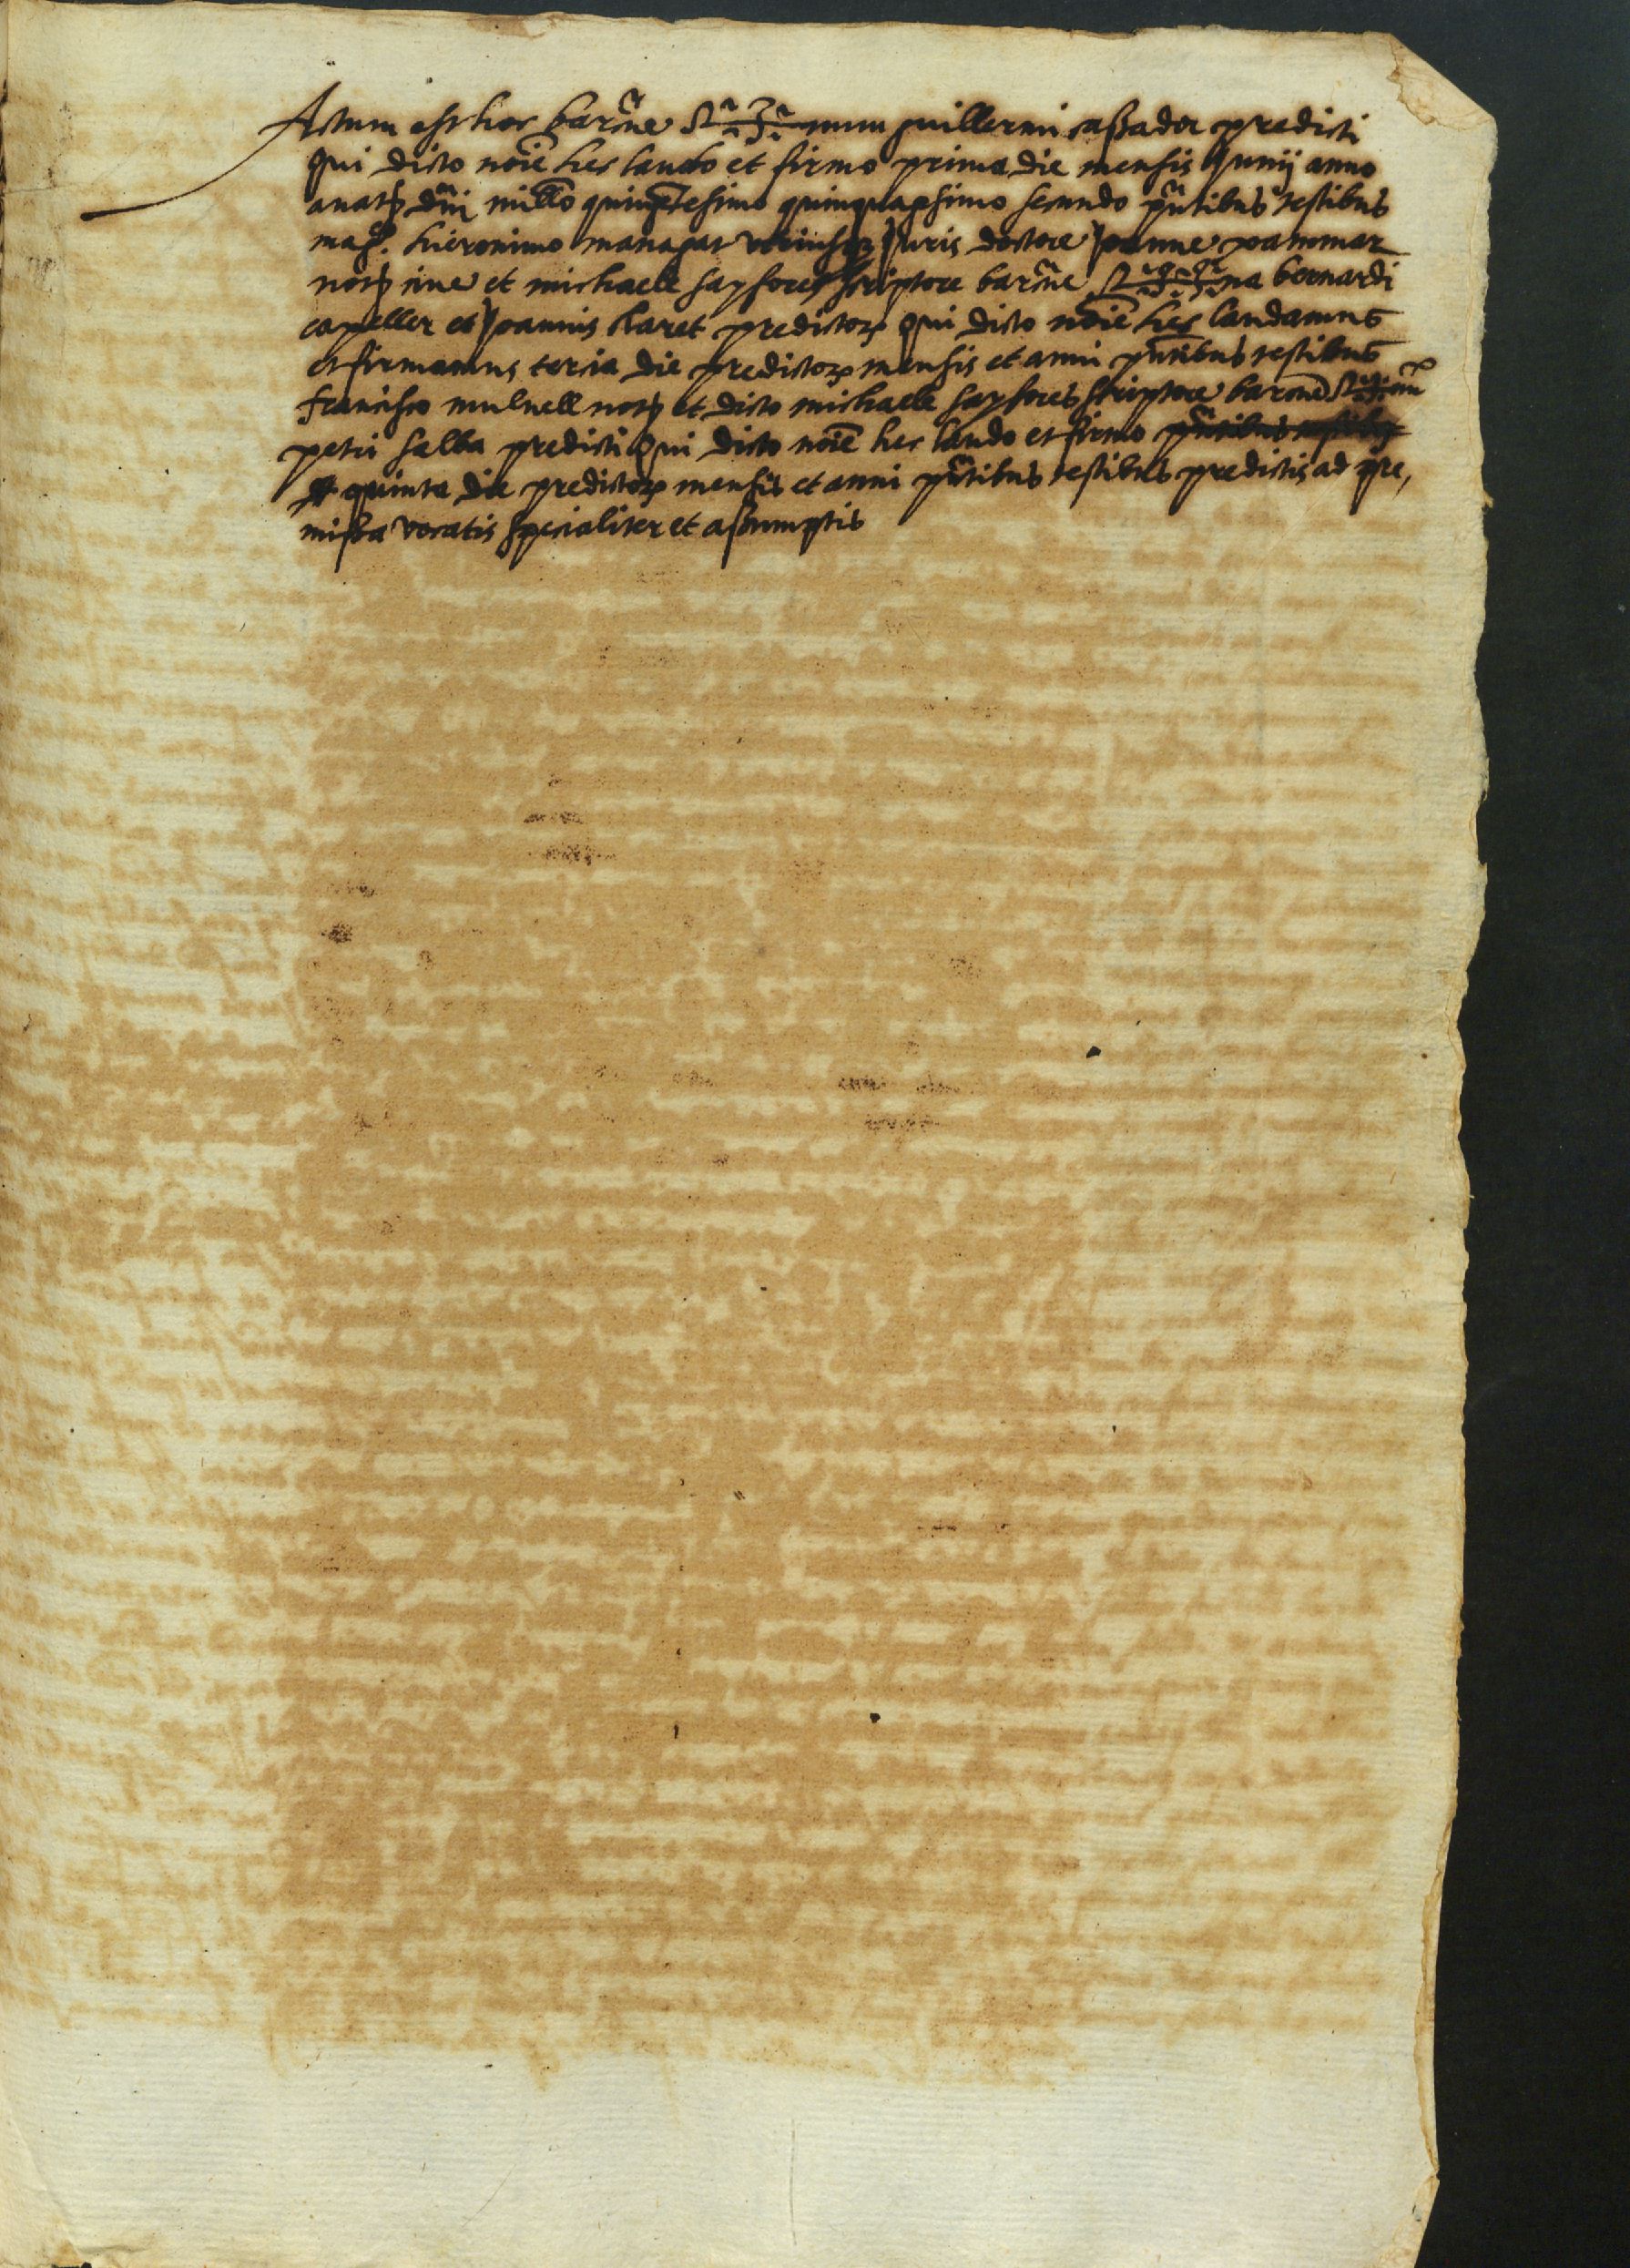 Actum est hoc barne Sig num guillermi cassador predicti
qui dicto noie hec laudo et firmo prima die mensis Junij anno
a nat dni millo quingentesimo quinquagesimo secundo pntibus testibus
mag. hieronimo managat utriusq Juris doctore Joanne
not cive et michaele sayfores scriptore barne Sig na bernardi
capeller et Joannis claret predictor qui dicto noie hec laudamus
et firmamus tercia die predictor mensis et anni pntibus testibus
francisco mulnell not et dicto michaele sayfores scriptore barcne Sig num
petri salba predicti qui dicto noie hec laudo et firmo pntibus testibus
quinta die predictor mensis et anni pntibus testibus predictis ad pre,
missa vocatis specialiter et assumptis